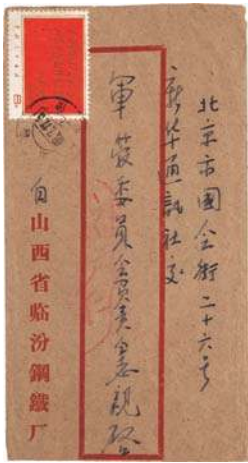 北京市國会街二十六号
新华通訊社交
軍管委員会負責同志親啓
自山西省临汾鋼鐵厂